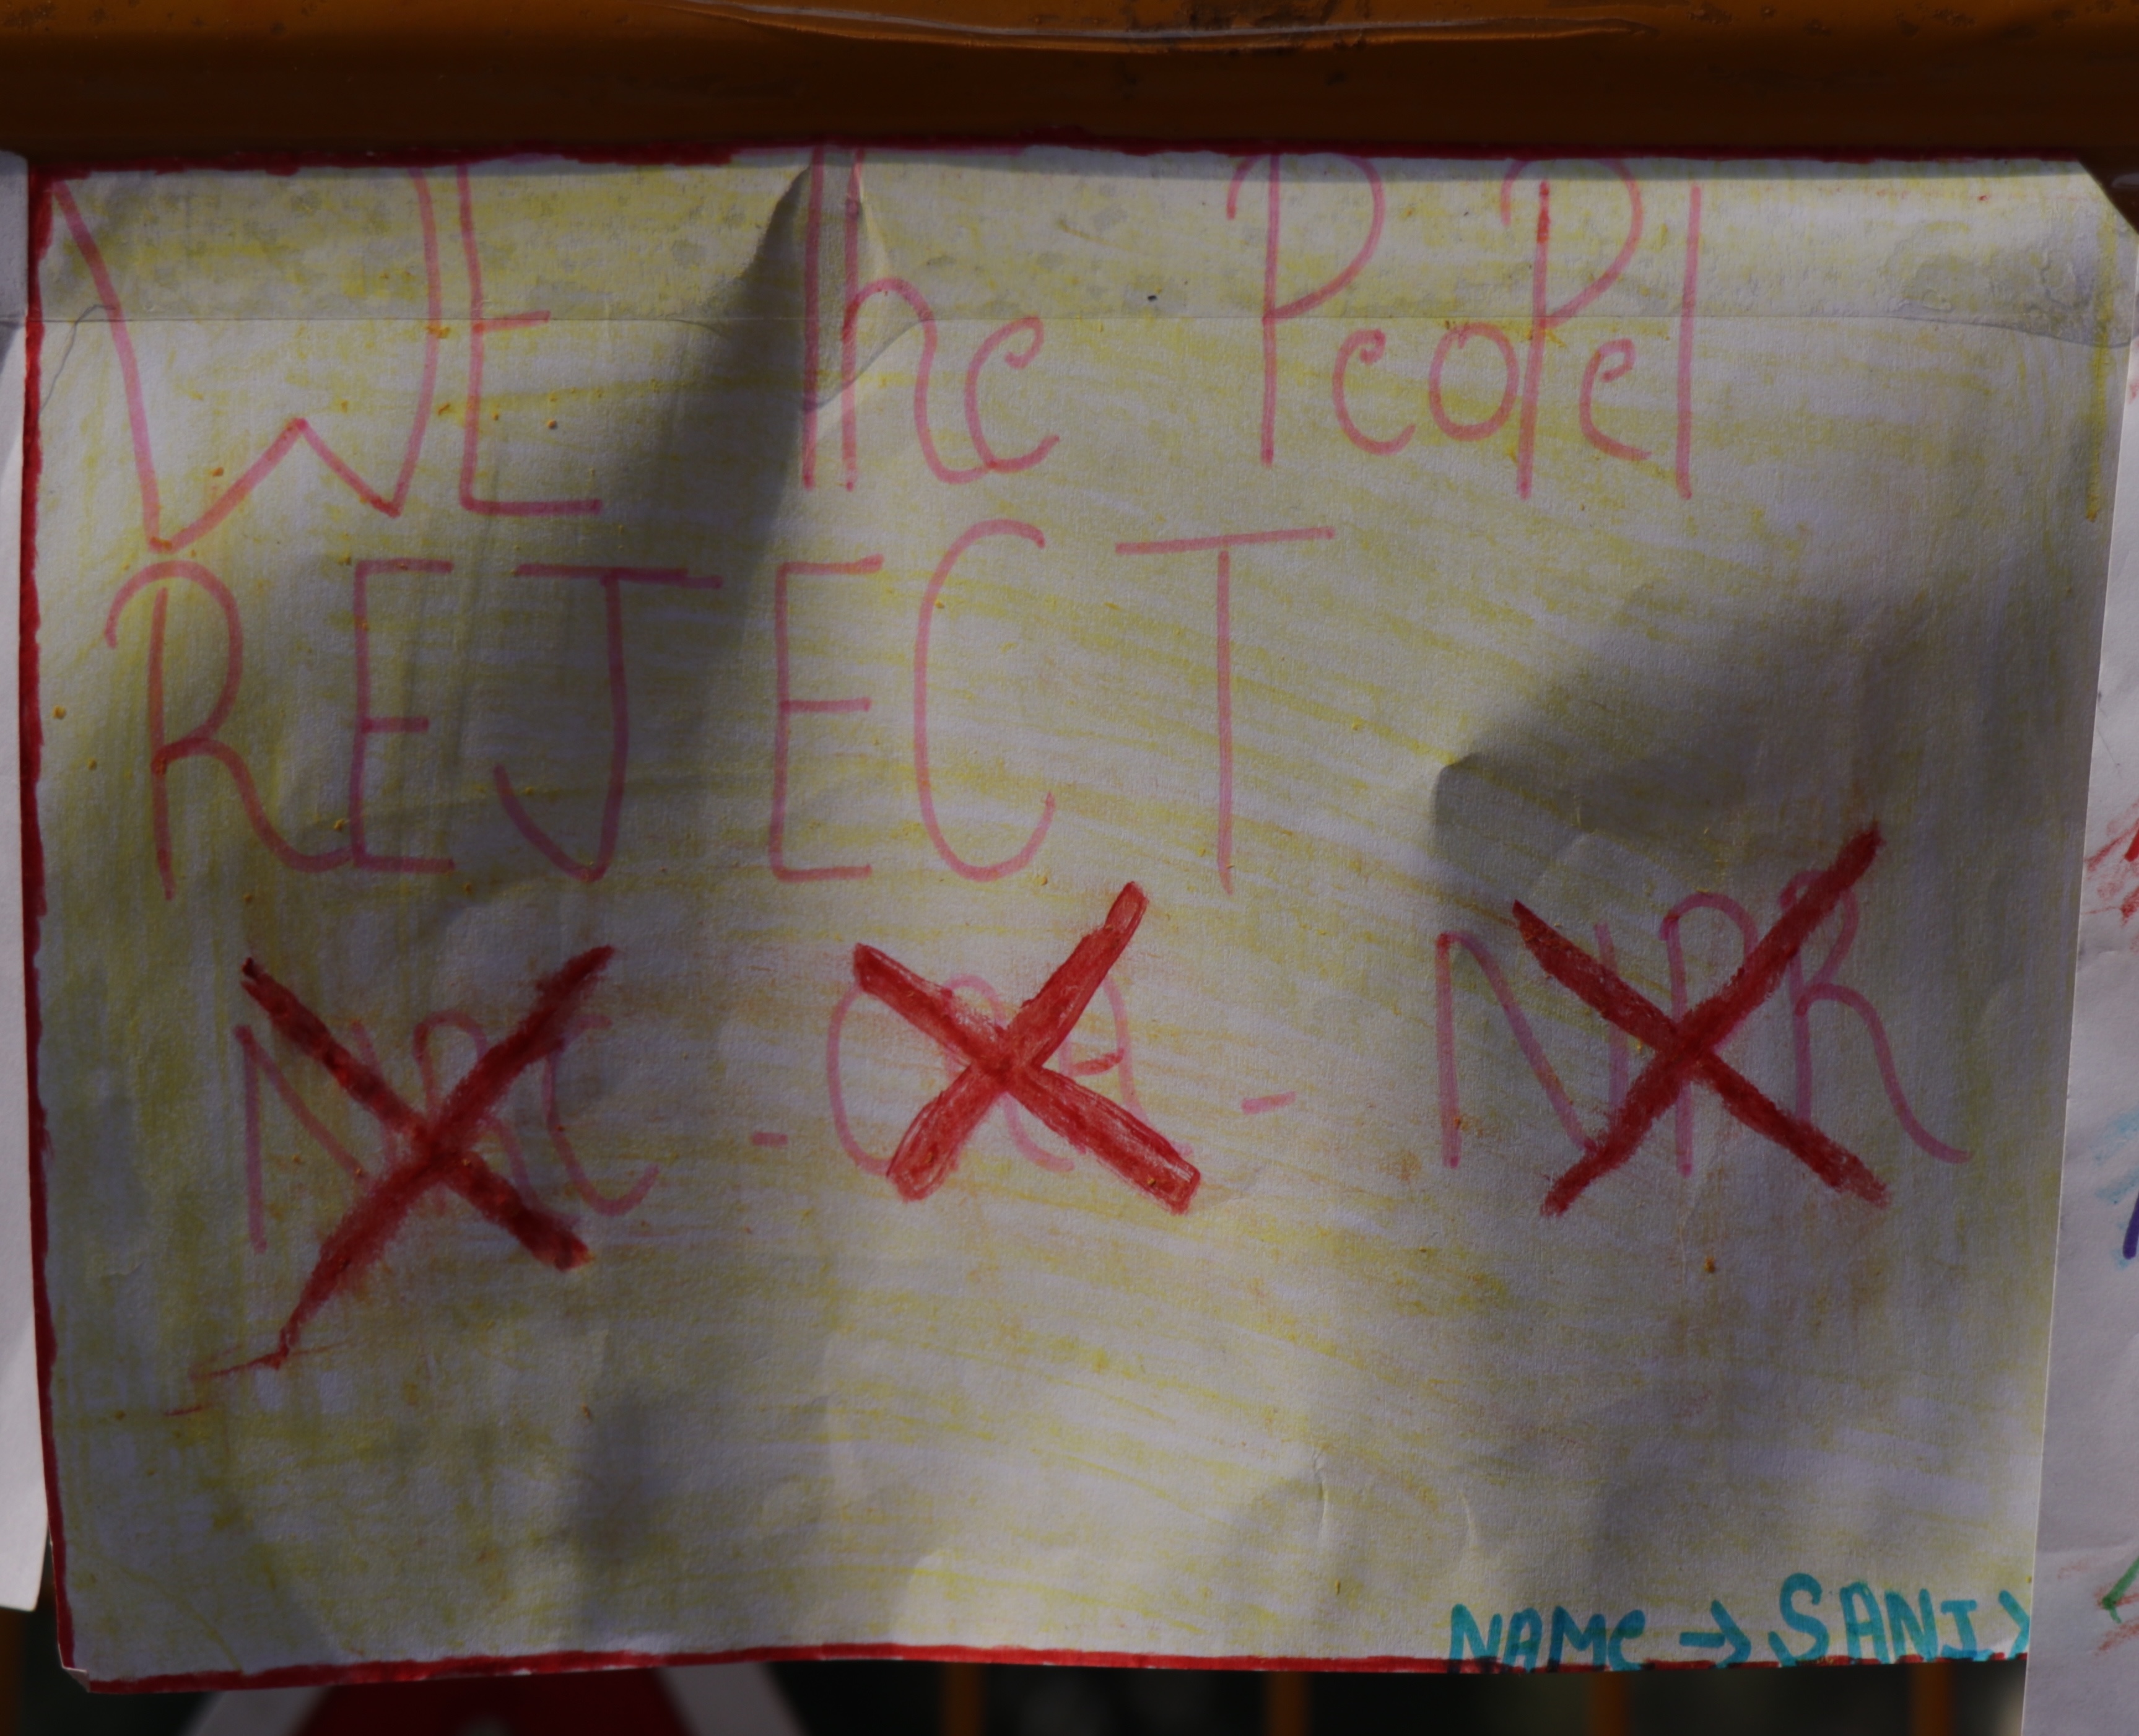 WE The PeoPel
REJECT
NRC - CAA - NPR
NAMe → SANI